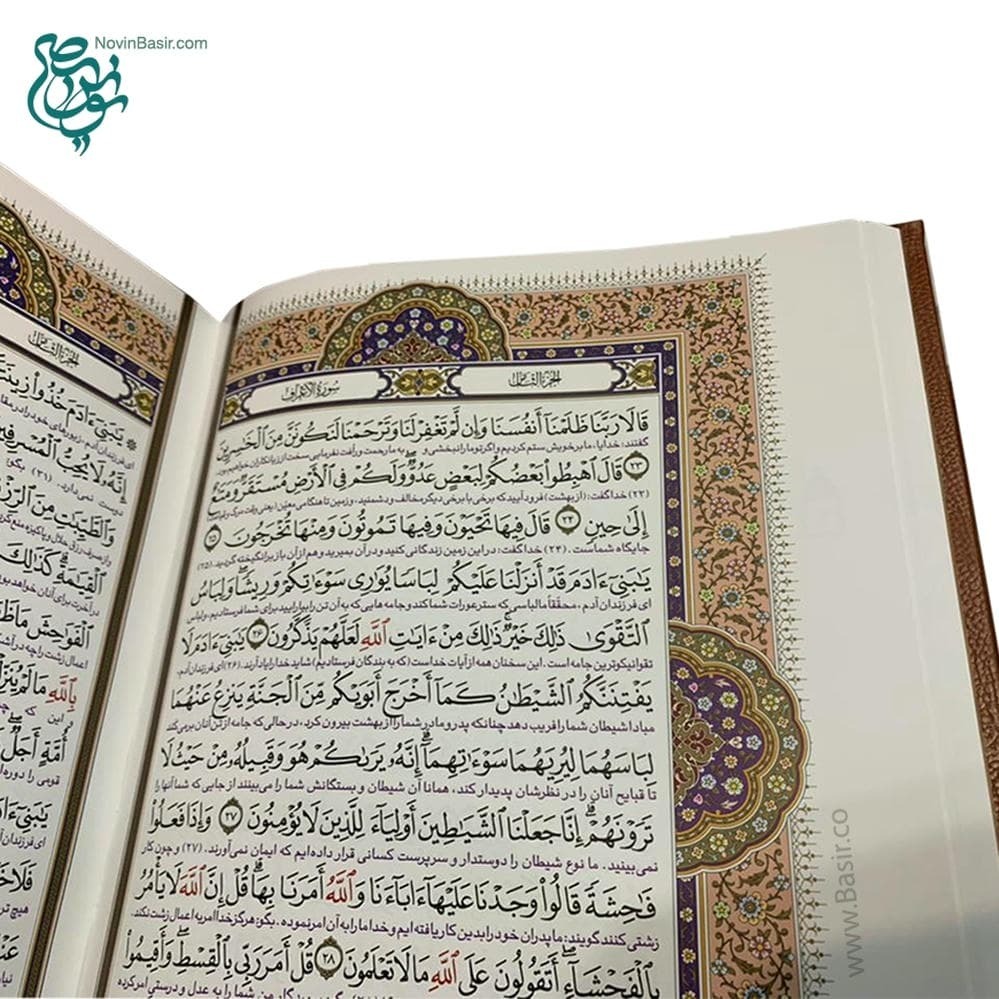 NovinBasir.com
الجزء الثامن
سورة الأعراف
قَالَا رَبَّنَا ظَلَمْنَا أَنفُسَنَا وَإِن لَّمْ تَغْفِرْ لَنَا وَتَرْحَمْنَا لَنَكُونَنَّ مِنَ الْخَٰسِرِينَ
گفتند: خدایا، ما بر خویش ستم کردیم و اگر تو ما را نبخشی و به ما رحمت و رأفت نفرمایی سخت از زیانکاران خواهیم بود.
﴿٢٣﴾ قَالَ ٱهْبِطُوا۟ بَعْضُكُمْ لِبَعْضٍ عَدُوٌّ ۖ وَلَكُمْ فِى ٱلْأَرْضِ مُسْتَقَرٌّ وَمَتَٰعٌ
(۲۳) خدا گفت: (از بهشت) فرود آیید که برخی با برخی دیگر مخالف و دشمنید، و زمین تا هنگامی معین (یعنی وقت مرگ و قیامت)
إِلَىٰ حِينٍ ﴿٢٤﴾ قَالَ فِيهَا تَحْيَوْنَ وَفِيهَا تَمُوتُونَ وَمِنْهَا تُخْرَجُونَ ﴿٢٥﴾
جایگاه شماست. (۲۴) خدا گفت: در این زمین زندگانی کنید و در آن بمیرید و هم از آن باز برانگیخته گردید. (۲۵)
يَٰبَنِىٓ ءَادَمَ قَدْ أَنزَلْنَا عَلَيْكُمْ لِبَاسًا يُوَٰرِى سَوْءَٰتِكُمْ وَرِيشًا ۖ وَلِبَاسُ
ای فرزندان آدم، محققاً ما لباسی که ستر عورات شما کند و جامه هایی که به آن تن را بیارایید برای شما فرستادیم، و لباس
ٱلتَّقْوَىٰ ذَٰلِكَ خَيْرٌ ۚ ذَٰلِكَ مِنْ ءَايَٰتِ ٱللَّهِ لَعَلَّهُمْ يَذَّكَّرُونَ ﴿٢٦﴾ يَٰبَنِىٓ ءَادَمَ لَا
تقوا نیکوترین جامه است. این سخنان همه از آیات خداست (که به بندگان فرستادیم) شاید خدا را یاد آرند. (۲۶) ای فرزندان آدم،
يَفْتِنَنَّكُمُ ٱلشَّيْطَٰنُ كَمَآ أَخْرَجَ أَبَوَيْكُم مِّنَ ٱلْجَنَّةِ يَنزِعُ عَنْهُمَا
مبادا شیطان شما را فریب دهد چنانکه پدر و مادر شما را از بهشت بیرون کرد، در حالی که جامه از تن آنان بر می‌کند
لِبَاسَهُمَا لِيُرِيَهُمَا سَوْءَٰتِهِمَآ ۗ إِنَّهُۥ يَرَىٰكُمْ هُوَ وَقَبِيلُهُۥ مِنْ حَيْثُ لَا
تا قبایح آنان را در نظرشان پدیدار کند، همانا آن شیطان و بستگانش شما را می‌بینند از جایی که شما آنها را
تَرَوْنَهُمْ ۗ إِنَّا جَعَلْنَا ٱلشَّيَٰطِينَ أَوْلِيَآءَ لِلَّذِينَ لَا يُؤْمِنُونَ ﴿٢٧﴾ وَإِذَا فَعَلُوا۟
نمی‌بینید. ما نوع شیطان را دوستدار و سرپرست کسانی قرار داده‌ایم که ایمان نمی‌آورند. (۲۷) و چون کار
فَٰحِشَةً قَالُوا۟ وَجَدْنَا عَلَيْهَآ ءَابَآءَنَا وَٱللَّهُ أَمَرَنَا بِهَا ۗ قُلْ إِنَّ ٱللَّهَ لَا يَأْمُرُ
زشتی کنند گویند: ما پدران خود را بدین کار یافته ایم و خدا ما را به آن امر نموده. بگو: هرگز خدا امر به اعمال زشت نکند.
بِٱلْفَحْشَآءِ ۖ أَتَقُولُونَ عَلَى ٱللَّهِ مَا لَا تَعْلَمُونَ ﴿٢٨﴾ قُلْ أَمَرَ رَبِّى بِٱلْقِسْطِ ۖ وَأَقِيمُوا۟
من شما را به عدل و درستی امر کرده
www.Basir.co
الجزء الثامن
يَٰبَنِىٓ ءَادَمَ خُذُوا۟ زِينَتَكُمْ
ای فرزندان آدم، زیورهای خود را در
إِنَّهُۥ لَا يُحِبُّ ٱلْمُسْرِفِينَ
دوست نمی دارد. (۳۱) بگو:
وَٱلطَّيِّبَٰتِ مِنَ ٱلرِّزْقِ
و از صرف رزق حلال و پاکیزه منع کرده
ٱلْقِيَٰمَةِ ۗ كَذَٰلِكَ
در آخرت برای آنان خواهد بود
ٱلْفَوَٰحِشَ مَا ظَهَرَ
اعمال زشت را چه در آشکار
بِٱللَّهِ مَا لَمْ يُنَزِّلْ
و این که
أُمَّةٍ أَجَلٌ ۖ
قومی را دوره‌ای
يَٰبَنِىٓ ءَادَمَ
ای فرزندان آدم
فَلَا خَوْفٌ
هیچ